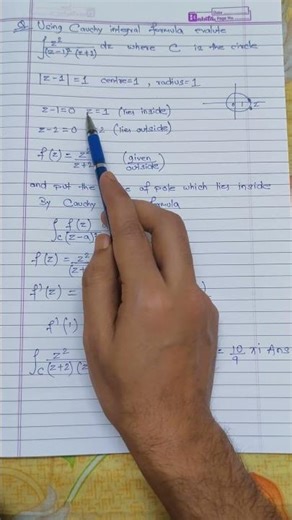 Q. Using Cauchy integral formula evalute
∫ z²/(z-1)²(z+2) dz where C is the circle
|z-1| = 1 centre=1 , radius=1
z-1=0 z=1 (lies inside)
z-2=0 2 (lies outside)
f(z) = z²/z+ (given outside)
and put the of pole which lies inside
By Cauchy formula
∫c f(z)/(z-a)
f(z) = z²/(z+
f'(z) =
f'(1)
∫c z²/(z+2)(z = 10/9 πi Ans